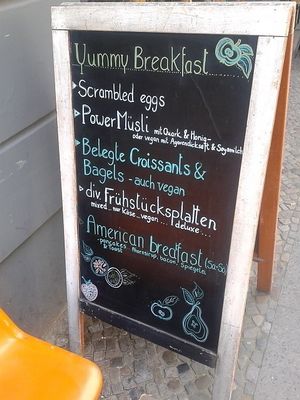 Yummy Breakfast
Scrambled eggs
PowerMüsli mit Quark & Honig-
oder vegan mit Agavendicksaft & Sojamilch
Belegte Croissants &
Bagels - auch vegan
div. Frühstücksplatten
mixed... nur Käse... vegan... deluxe...
American breafast (Sa-So)
-pancakes, Ahornsirup, bacon, Spiegelei
& toast